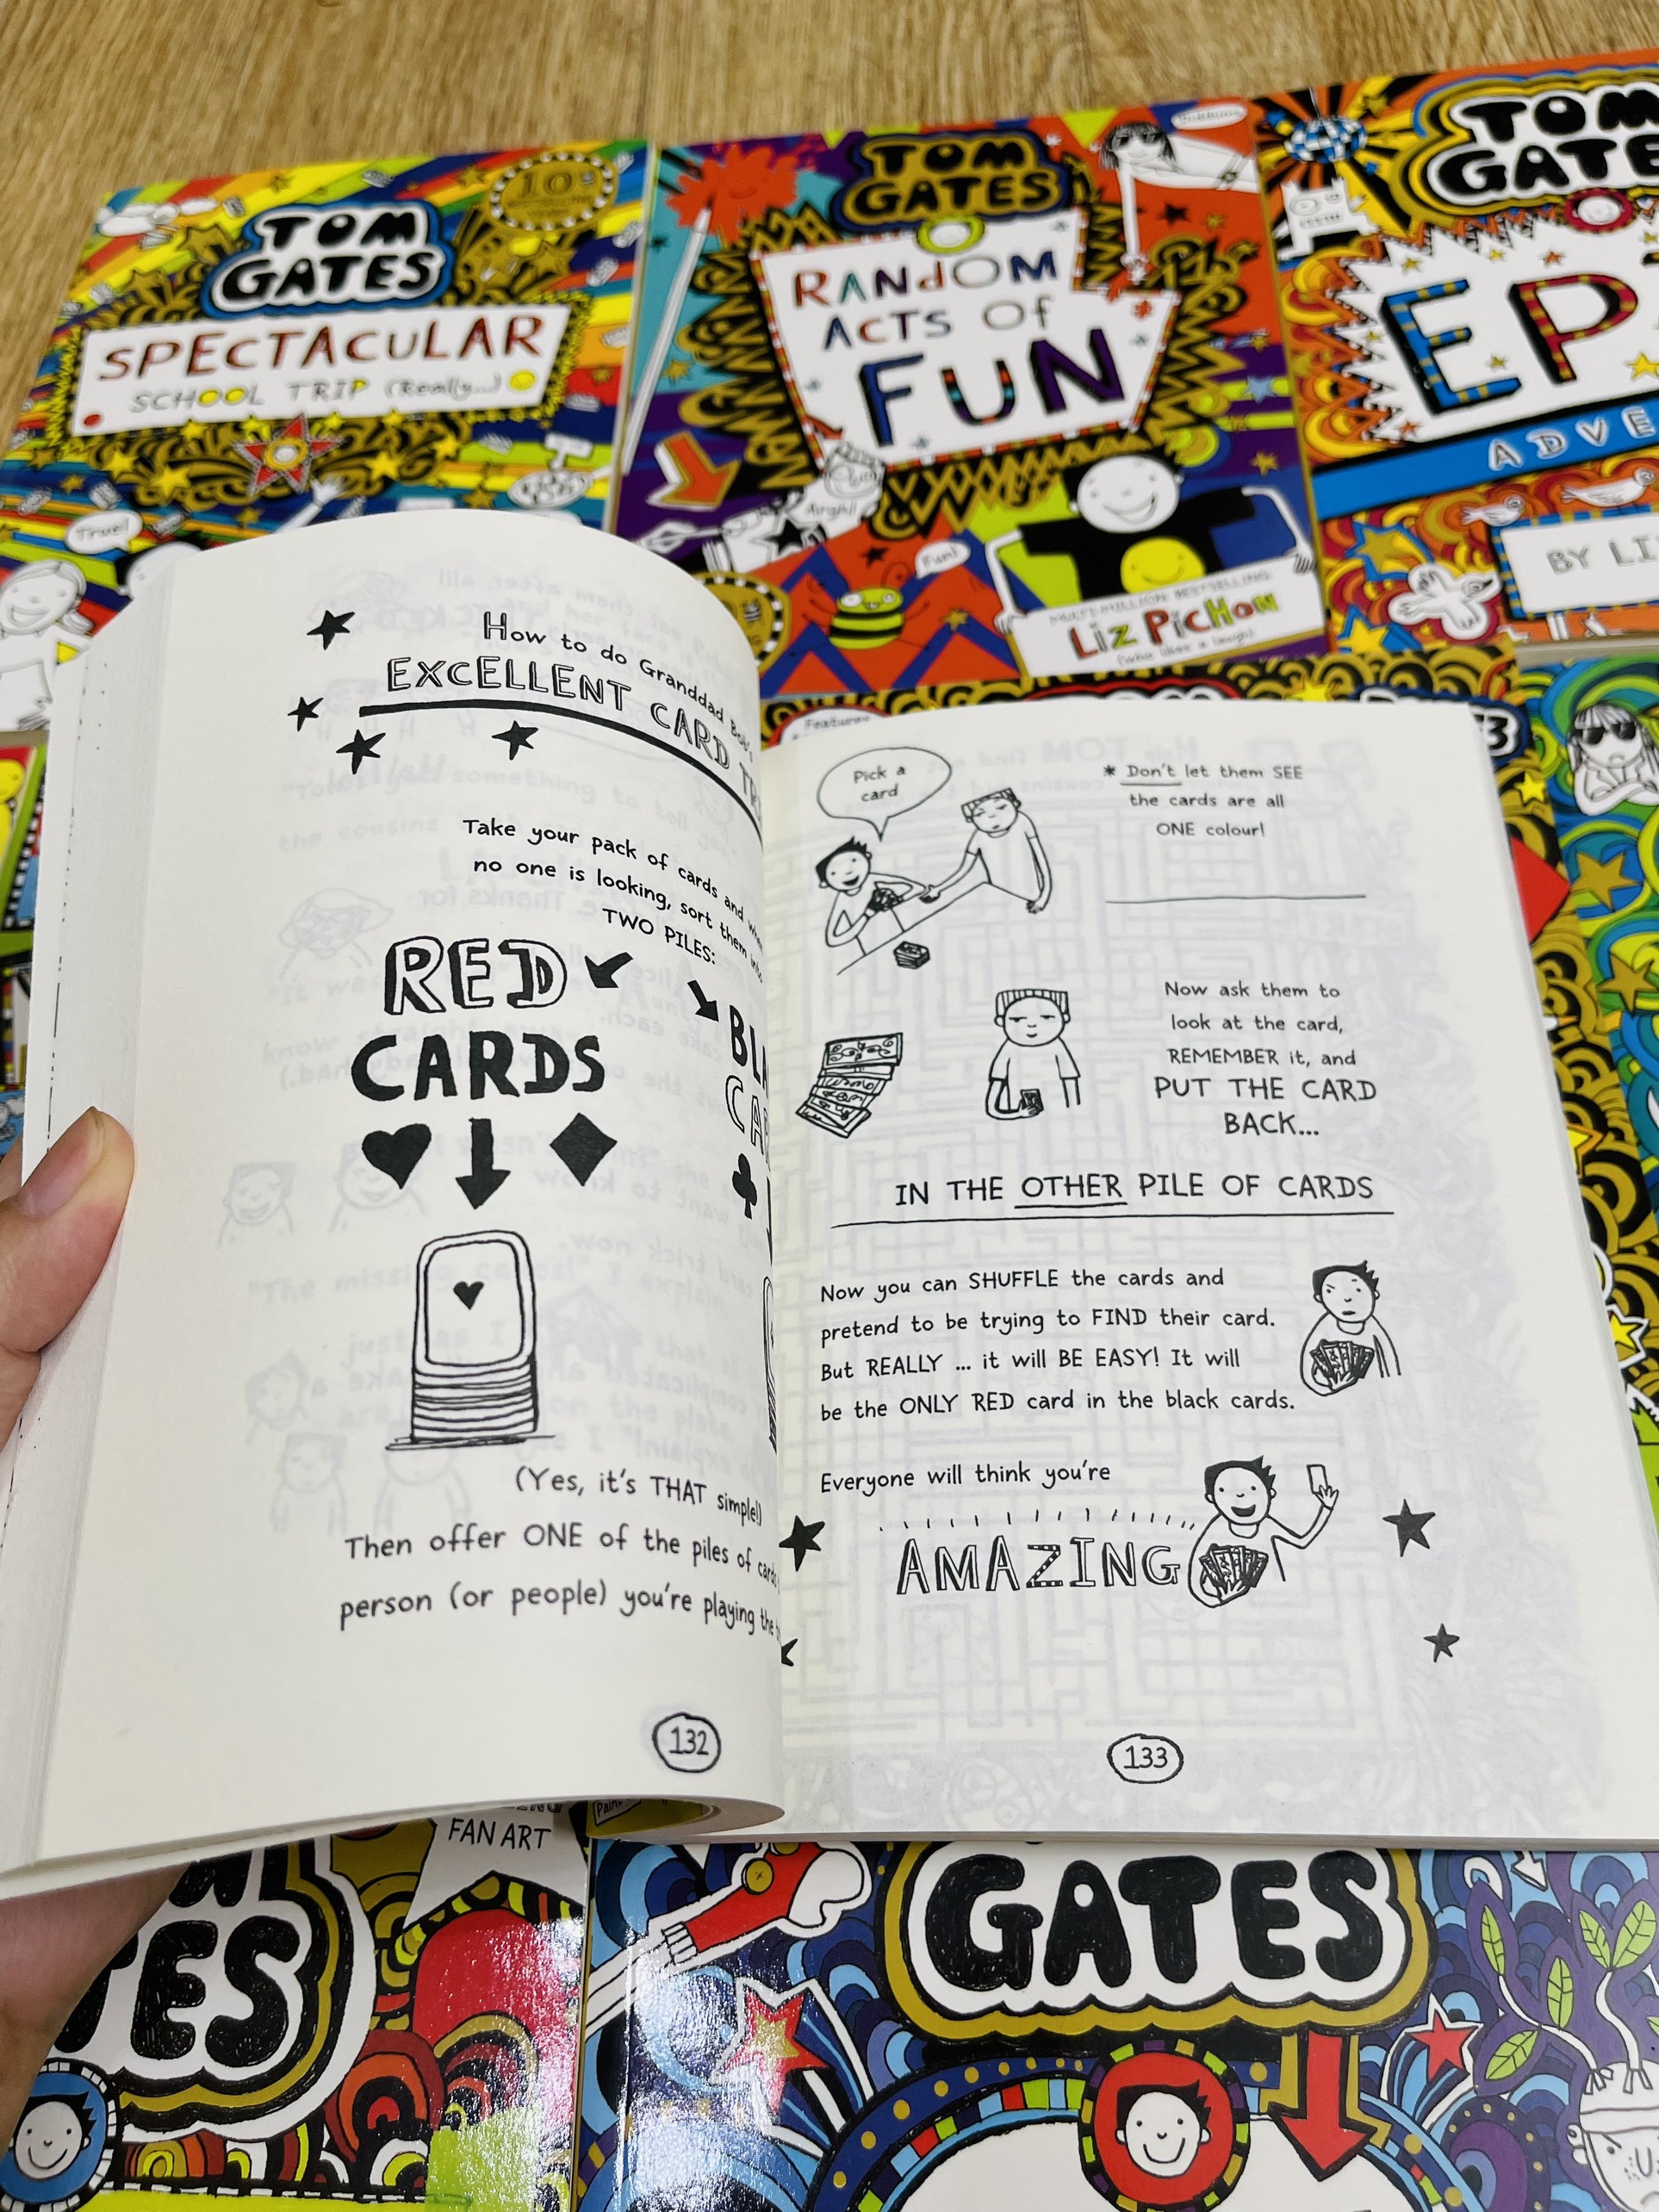 TOM
GATES
SPECTACULAR
SCHOOL TRIP (Really...)
True!
TOM
GATES
RANdOM
ACTS Of
FUN
Fun!
MULTI-MILLION BESTSELLING
Liz PiCHoN
TOM
EP
ADVE
BY LI
How to do Granddad Bob's
EXCELLENT CARD
Take your pack of cards and when
no one is looking, sort them into
TWO PILES:
RED
CARDS
(Yes, it's THAT simple!)
Then offer ONE of the piles of cards
person (or people) you're playing the
132
Pick a
card
* Don't let them SEE
the cards are all
ONE colour!
Now ask them to
look at the card,
REMEMBER it, and
PUT THE CARD
BACK...
IN THE OTHER PILE OF CARDS
Now you can SHUFFLE the cards and
pretend to be trying to FIND their card.
But REALLY ... it will BE EASY! It will
be the ONLY RED card in the black cards.
Everyone will think you're
AMAZING
133
FAN ART
GATES